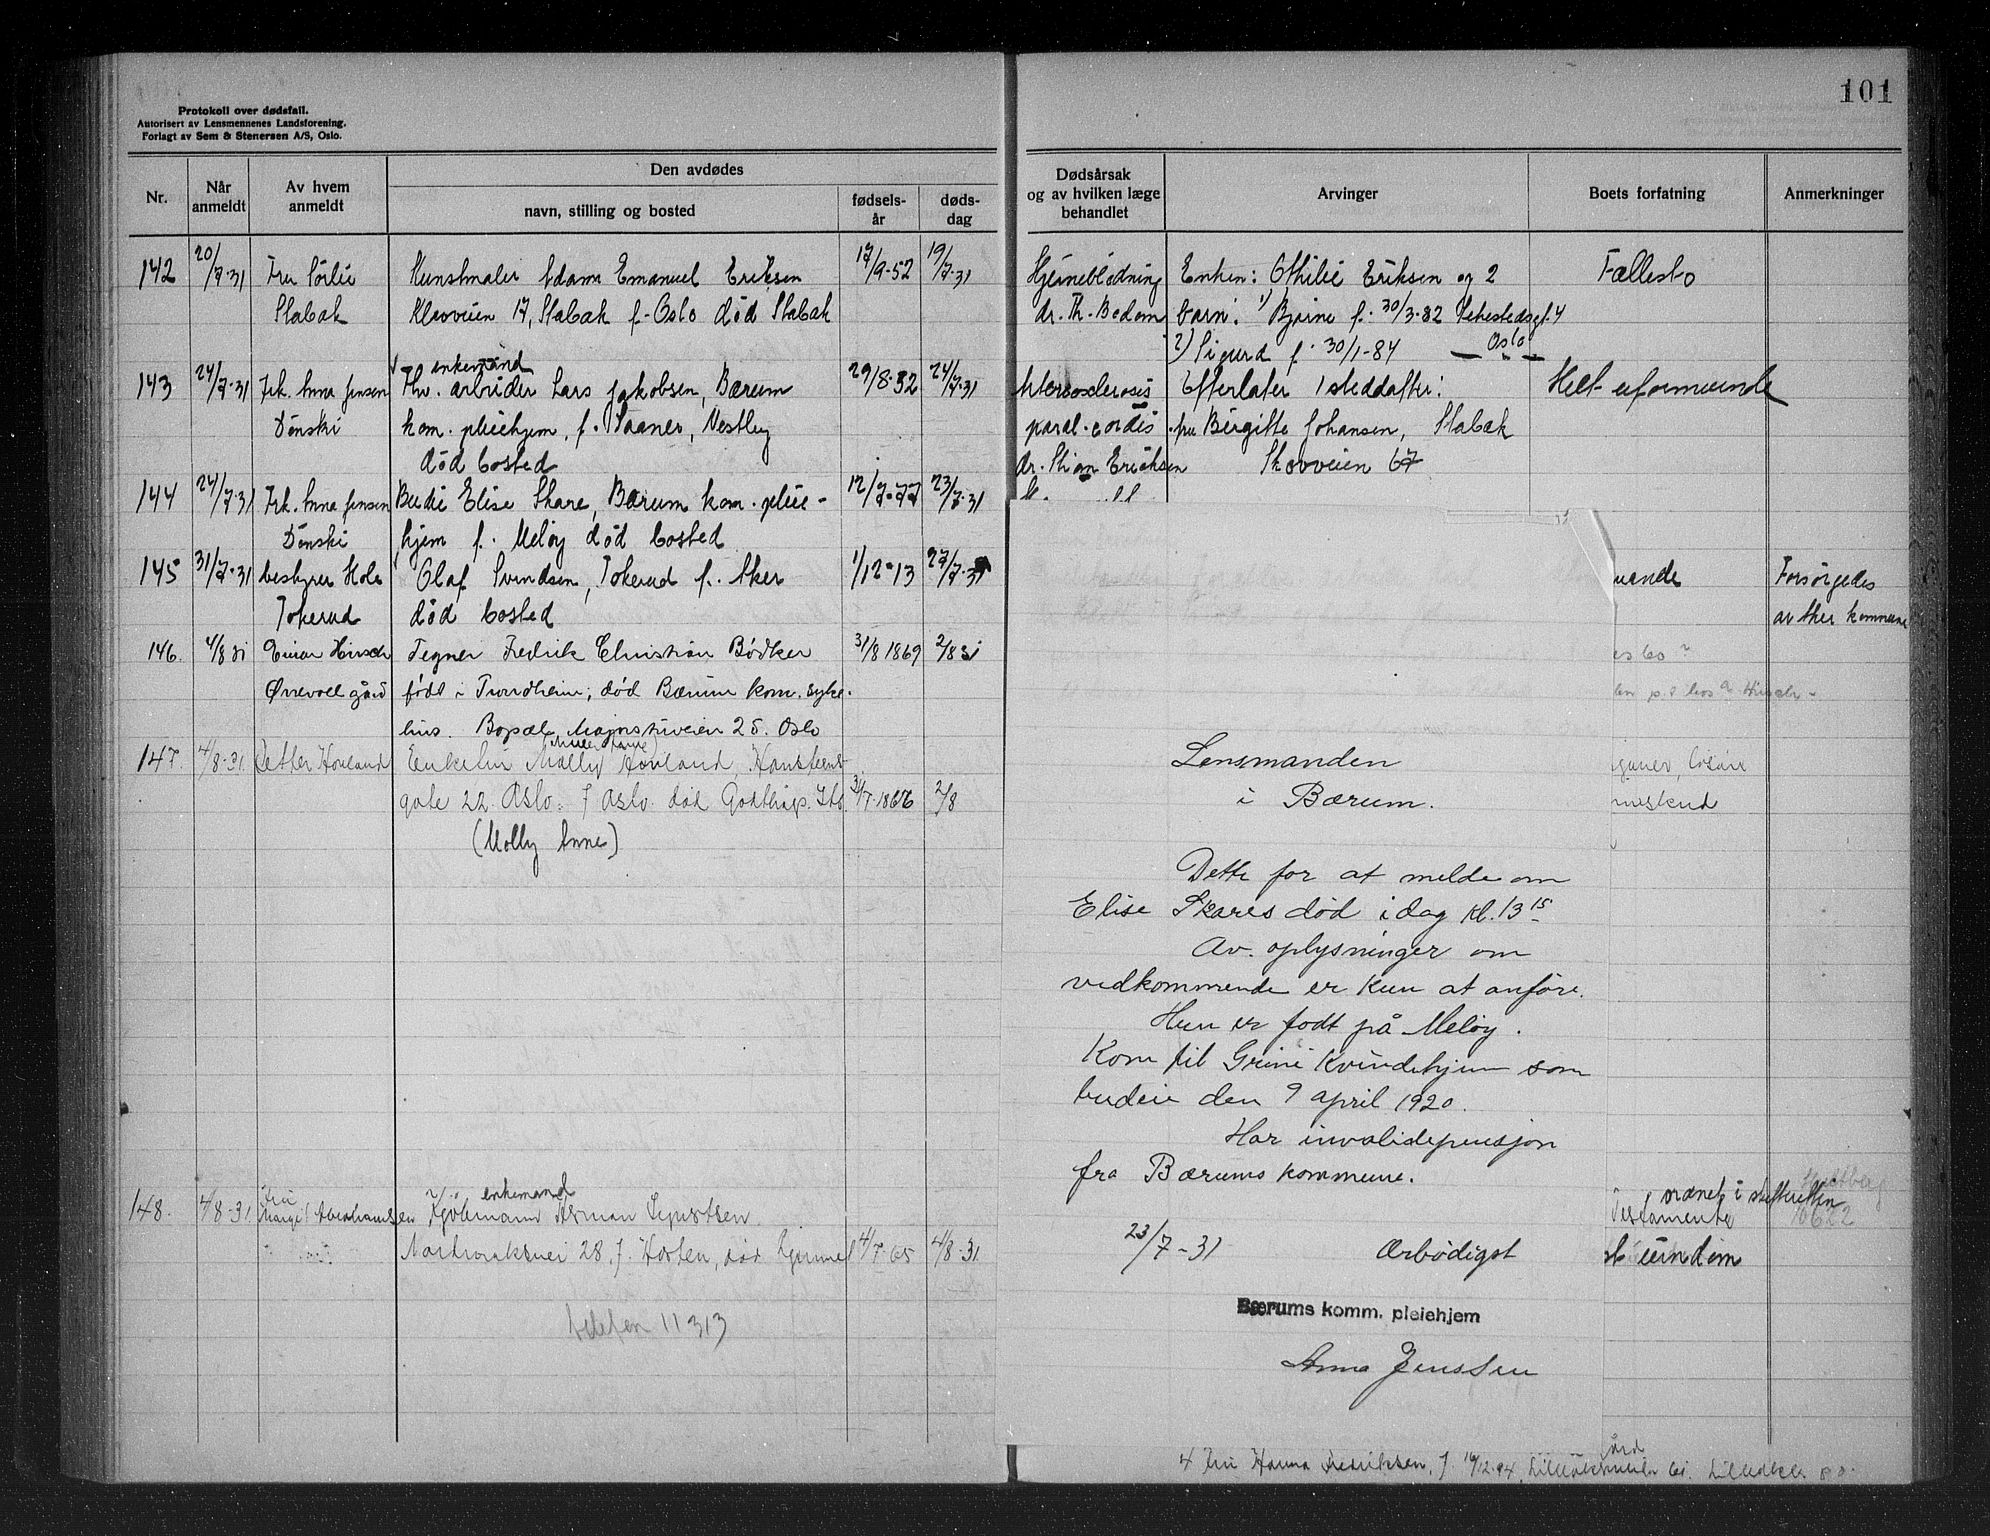 101
Protokoll over dødsfall.
Autorisert av Lensmennenes Landsforening.
Forlagt av Sem & Stenersen A/S, Oslo.
Nr.
Når anmeldt
Av hvem anmeldt
Den avdødes
navn, stilling og bosted
fødsels-år
døds-dag
Dødsårsak og av hvilken læge behandlet
Arvinger
Boets forfatning
Anmerkninger
142 20/7-31 Fru Sørlie Kunstmaler Adam Emanuel Eriksen 17/9-52 19/7-31 Hjerneblødning Enken: Othilie Eriksen og 2 Fællesbo
Stabæk Kleivveien 17, Stabæk f. Oslo død Stabæk dr. Th. Bedom barn: 1) Bjarne f. 30/3-82 Sehestedsgt. 4
2) Sigurd f. 30/1-84 Oslo
enkemand
143 24/7-31 Frk. Anna Jensen Fhv. arbeider Lars Jakobsen, Bærum 29/8-32 24/7-31 Arteriosclerosis Efterlater 1 steddatter: Helt uformuende
Dønski kom. pleiehjem, f. Vaaner, Vestby paral. cordis fru Birgitte Johansen, Stabæk
død bosted dr. Stian Erichsen Skovveien 67
144 24/7-31 Frk. Anna Jensen Budei Elise Skare, Bærum kom. pleie- 12/7-77 23/7-31
Dønski hjem f. Meløy død bosted
145 31/7-31 bestyrer Hole Olaf Svendsen, Tokerud f. Aker 1/12-13 27/7-31 uende Forsørgedes
Tokerud død bosted av Aker kommune
146. 4/8 31 Einar Hirsch Tegner Fredrik Christian Bødker 31/8 1869 2/8 31
Øvrevoll gård født i Trondheim, død Bærum kom. syke-
hus. Bopæl Majorstuveien 25. Oslo
147. 4/8-31. Petter Hovland Enkefru Molly Hovland, Hansteens-
gate 22. Oslo. f Oslo. død Godthåp. 3/7-1866 2/8
(Molly Anne)
Lensmanden
i Bærum.
Dette for at melde om
Elise Skares død i dag kl. 13 15
Av. oplysninger om
vedkommende er kun at anføre.
Hun er født på Meløy.
Kom til Grini Kvindehjem som
budeie den 9 april 1920.
Har invalidepensjon
fra Bærums kommune.
23/7-31 Ærbødigst
Bærums komm. pleiehjem
Anna Jenssen
Fru enkemand ordnet i skifteretten
148. 4/8-31. Margit Abrahamsen Kjøbmann Herman Sivertsen Testamente
28, f. Horten, død hjemmet 4/7-65 4/8-31. eiendom
telefon 11313
4 Fru Hanna Fredriksen, f. 16/12-94,